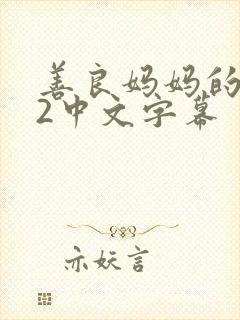 善良妈妈的
2中文字幕
亦妖言